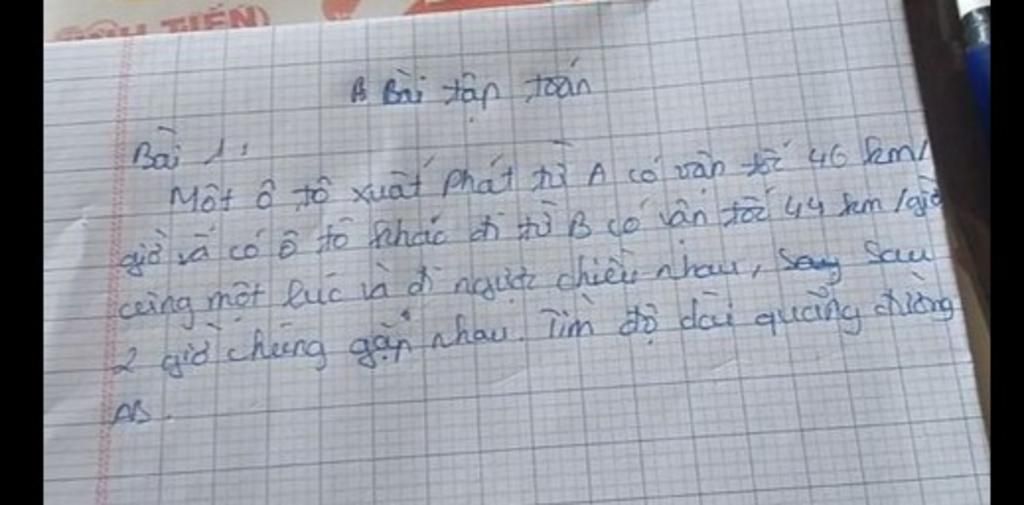 TIẾN)
B Bài tập toán
Bài 1:
Một ô tô xuất phát từ A có vận tốc 46 km/
giờ và có ô tô khác đi từ B có vận tốc 44 km/giờ
cùng một lúc và đi ngược chiều nhau, say sau
2 giờ chúng gặp nhau. Tìm độ dài quãng đường
AB.